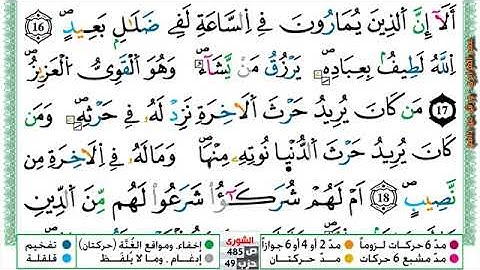 أَلَآ إِنَّ اَ۬لذِينَ يُمَارُونَ فِے اِ۬لسَّاعَةِ لَفِے ضَلَٰلِۢ بَعِيدٍۖ 16
اِ۬للَّهُ لَطِيفُۢ بِعِبَادِهِۦ يَرْزُقُ مَنْ يَّشَآءُۖ وَهُوَ اَ۬لْقَوِيُّ اُ۬لْعَزِيزُۖ
17 مَن كَانَ يُرِيدُ حَرْثَ اَ۬لَاخِرَةِ نَزِدْ لَهُۥ فِے حَرْثِهِۦۖ وَمَن
كَانَ يُرِيدُ حَرْثَ اَ۬لدُّنْيا نُوتِهِۦ مِنْهَاۖ وَمَا لَهُۥ فِے اِ۬لَاخِرَةِ مِن
نَّصِيبٍۖ 18 اَمْ لَهُمْ شُرَكَٰٓؤُاْ شَرَعُواْ لَهُم مِّنَ اَ۬لدِّينِ
مدّ 6 حركات لزوماً مدّ 2 أو 4 أو 6 جوازاً إخفاء، ومواقع الغُنَّة (حركتان) تفخيم
مدّ مشبع 6 حركات مدّ حركتان إدغام، وما لا يُلفَظ قلقلة
الشورى
ص 485
حزب 49